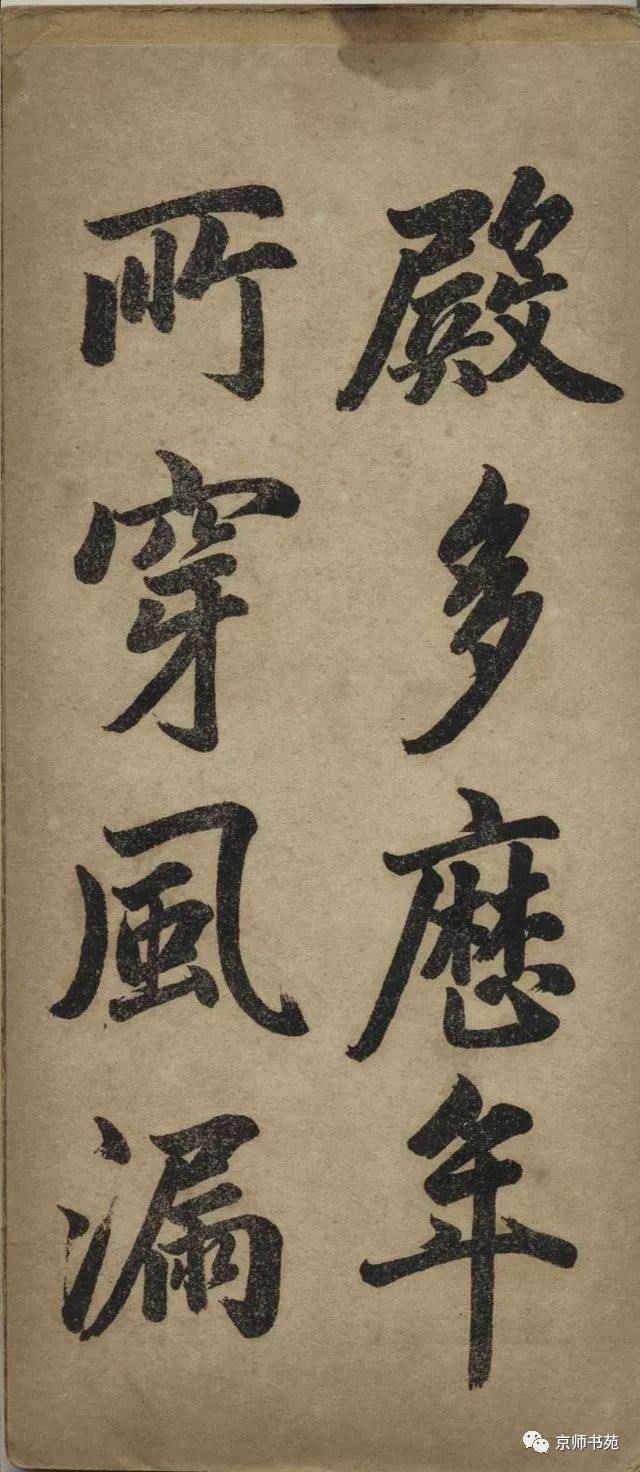 殿多歷年
所穿風漏
京师书苑